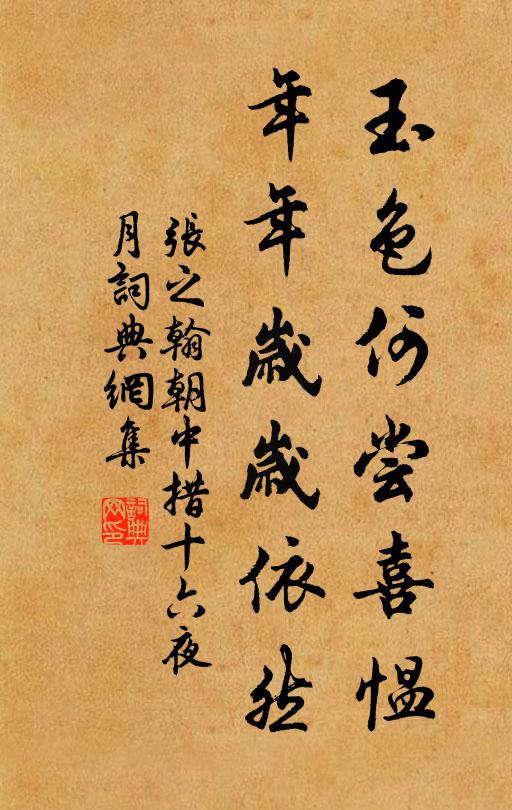 玉色何尝喜愠
年年歲歲依然
張之翰朝中措十六夜
月詞典網集
詞典網印